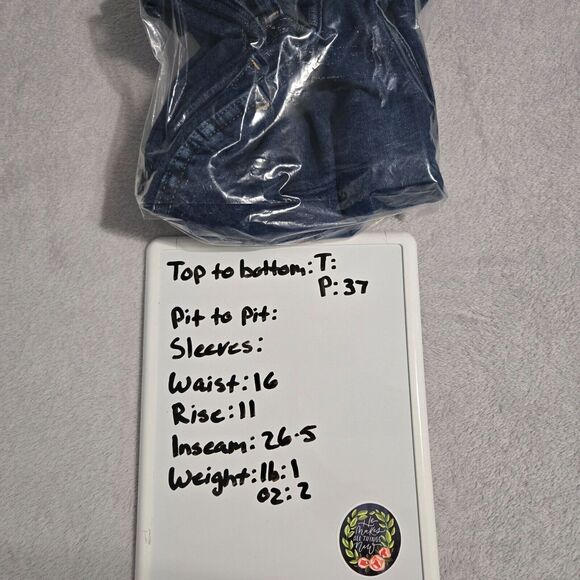 Top to bottom: T:
P: 37
Pit to Pit:
Sleeves:
Waist: 16
Rise: 11
Inseam: 26.5
Weight: lb: 1
oz: 2
He
makes
ALL THINGS
New